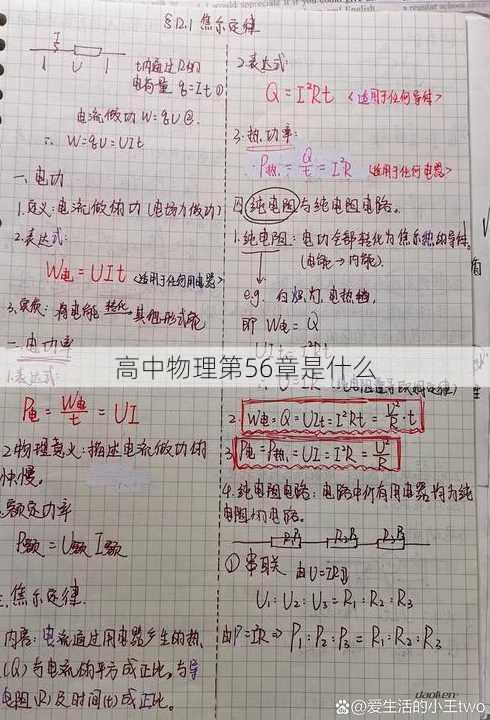 §12.1 焦尔定律
I
I U I
t内通过R的
电荷量 q=It ①
电流做功 W=qU ②.
∴ W=qU=UIt
一、电功
1.定义:电流做的功(电场力做功)
2.表达式:
W电=UIt <适用于任何用电器>
3.实质:将电能 转化 其他形式能
二、电功率
1.表达式:
P电=W电/t=UI
2.物理意义:描述电流做功的
快慢。
额定功率
P额=U额I额
三、焦尔定律.
内容:电流通过用电器产生的热
(Q)与电流的平方成正比,与导
电阻(R)及时间(t)成正比。
2.表达式:
Q=I²Rt <适用于任何导体>
3.热功率:
P热=Q/t=I²R <适用于任何电器>
四、纯电阻与纯电阻电路。
1.纯电阻:电功全部转化为焦尔热的导体.
(电能→内能).
e.g. 白炽灯、电热锅,
即 W电=Q
高中物理第56章是什么
2. W电=Q=UIt=I²Rt=U²/R·t
3. P电=P热=UI=I²R=U²/R
4.纯电阻电路:电路中所有用电器均为纯
电阻的电路。
R1 R2 R3
①串联 由U=IR可
U₁:U₂:U₃=R₁:R₂:R₃
由P=I²R⇒P₁:P₂:P₃=R₁:R₂:R₃
daolien
@爱生活的小王two